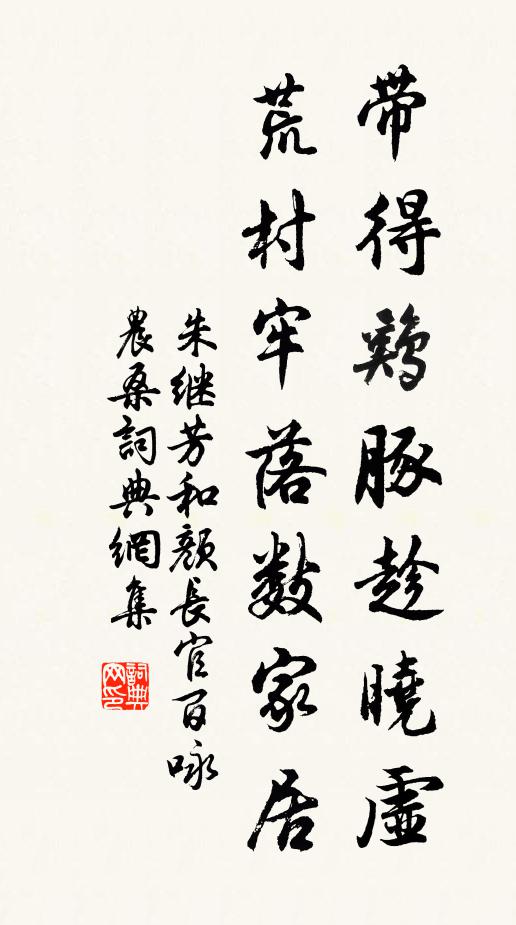 帶得鷄豚趁曉虛
荒村牢落數家居
朱继芳和顏長官百咏
農桑詞典網集
詞典网印